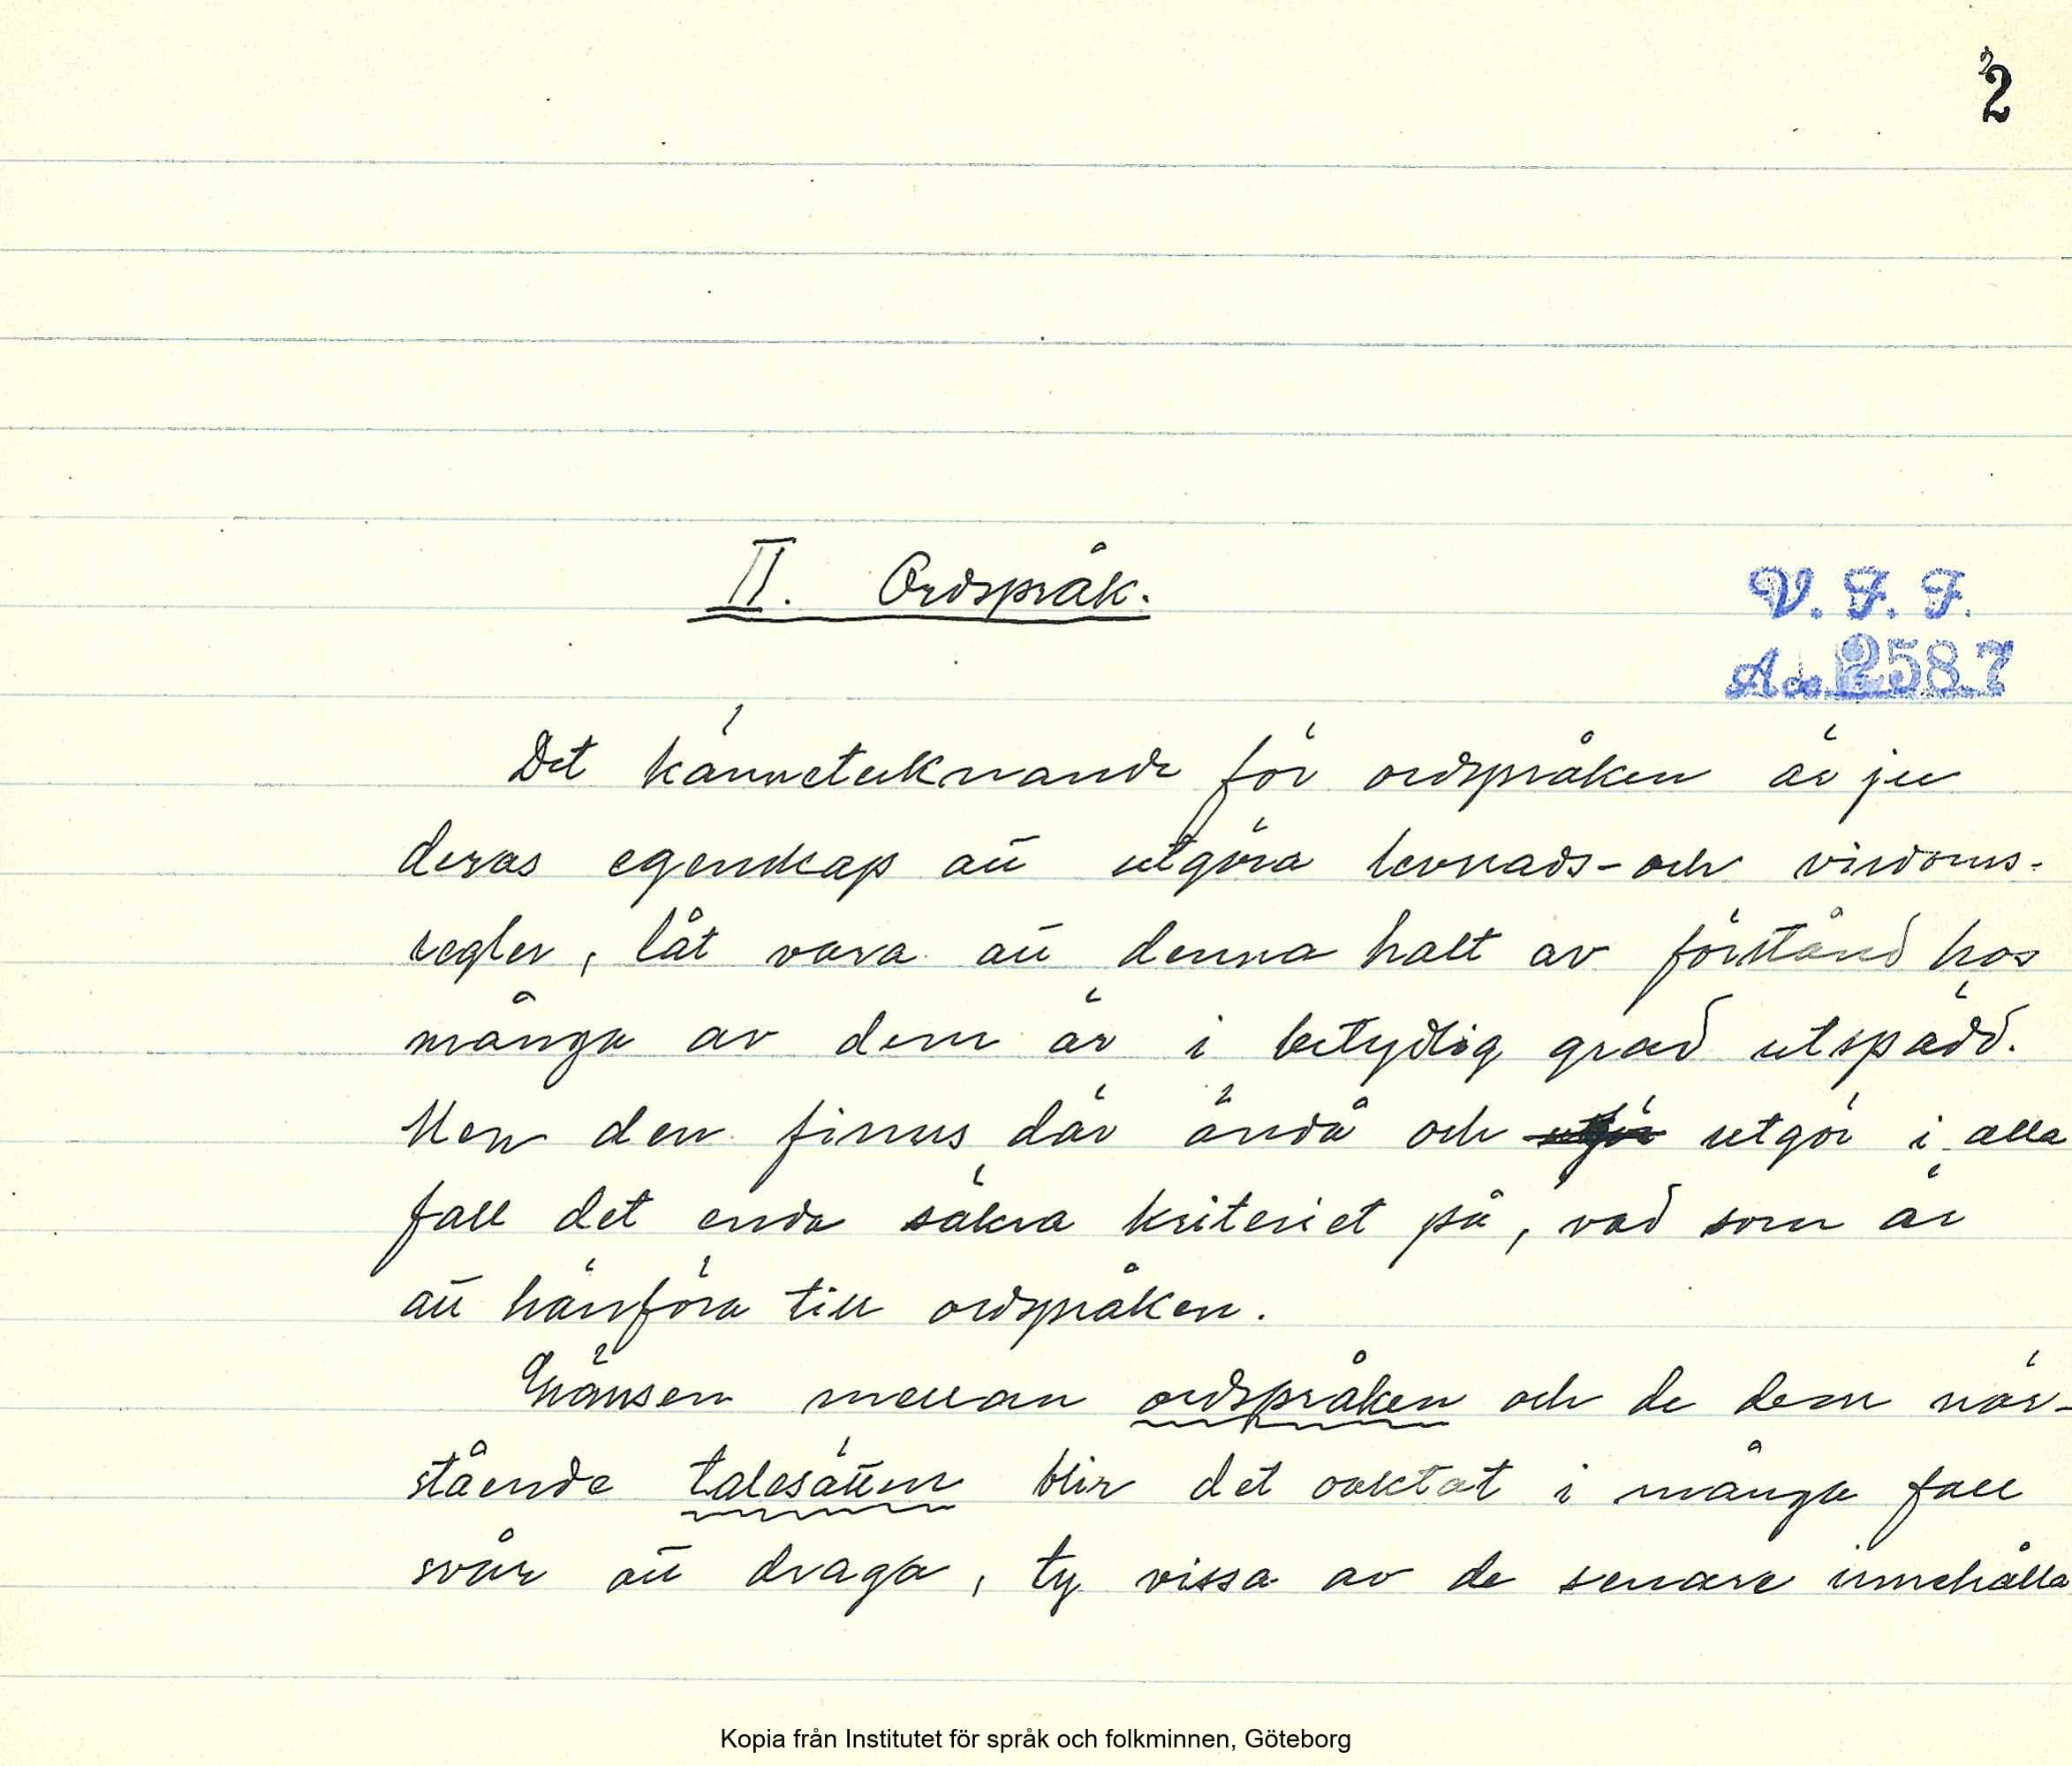 2
II. Ordspråk.
V. F. F.
Acc. 2587
Det kännetecknande för ordspråken är ju
deras egenskap att utgöra levnads- och visdoms-
regler, låt vara att denna halt av förstånd hos
många av dem är i betydlig grad utspädd.
Men den finns där ändå och utgör utgör i alla
fall det enda säkra kriteriet på, vad som är
att hänföra till ordspråken.
Gränsen mellan ordspråken och de dem när-
stående talesätten blir det oaktat i många fall
svår att draga, ty vissa av de senare innehålla
Kopia från Institutet för språk och folkminnen, Göteborg